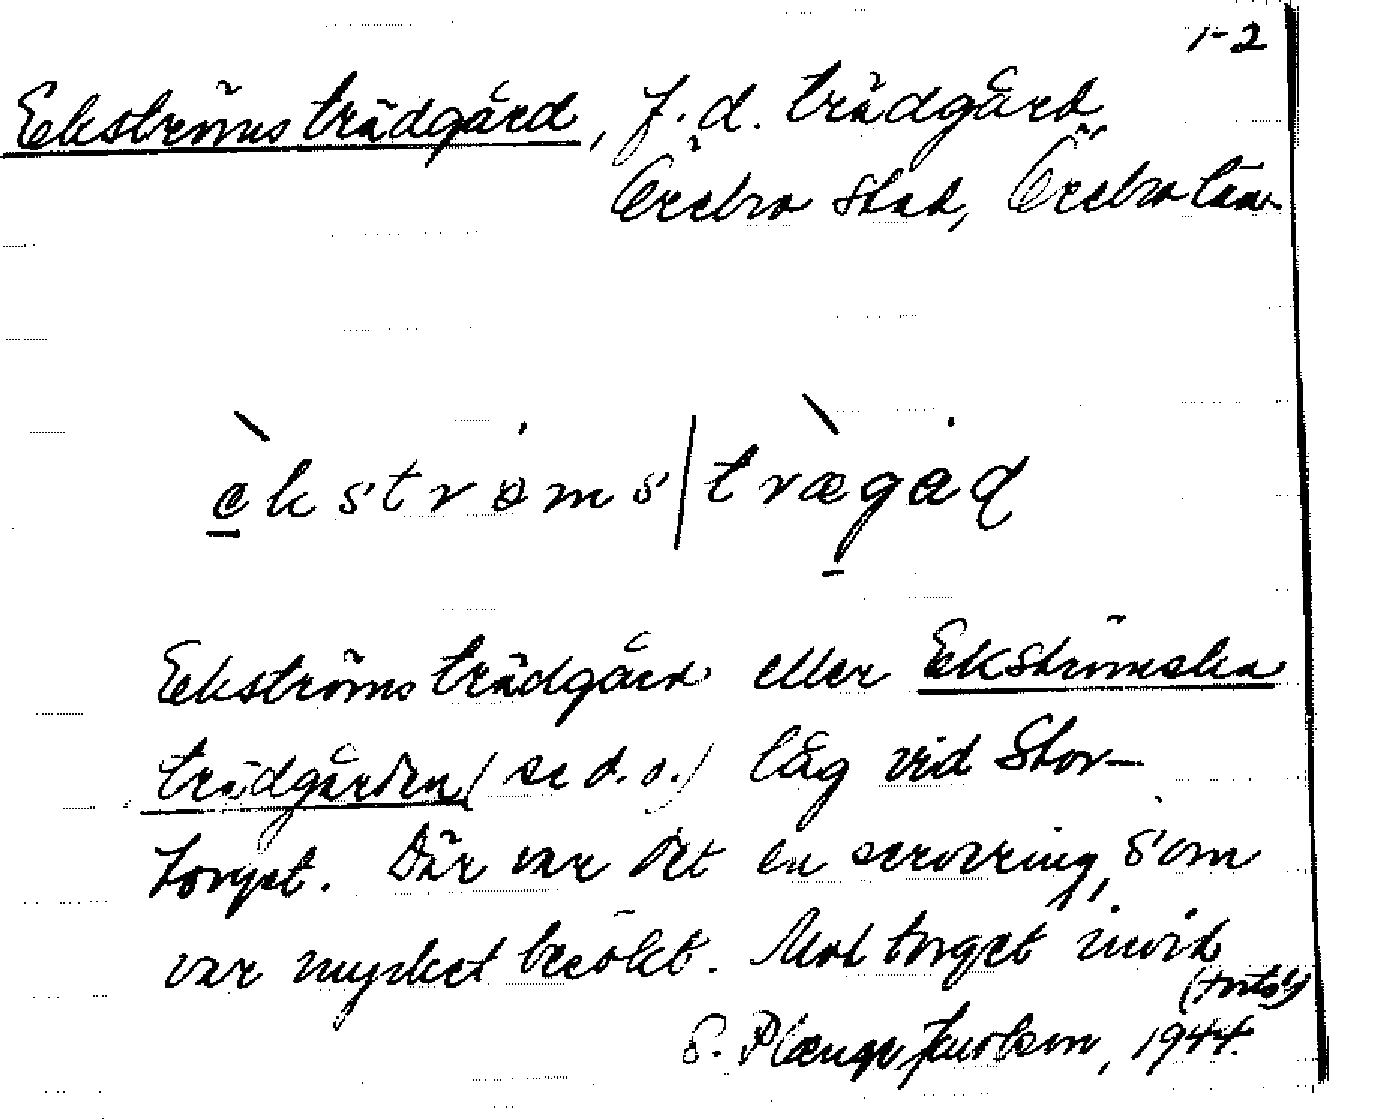 1-2
Ekströms trädgård, f.d. trädgård
Örebro stad, Örebro län
ekstrøms|trægaɖ
Ekströms trädgård eller Ekströmska
trädgården (se d.o.) låg vid Stor-
torget. Där var det en servering, som
var mycket besökt. Mot torget invid
(forts.)
S. Plænge Jacobson, 1944.